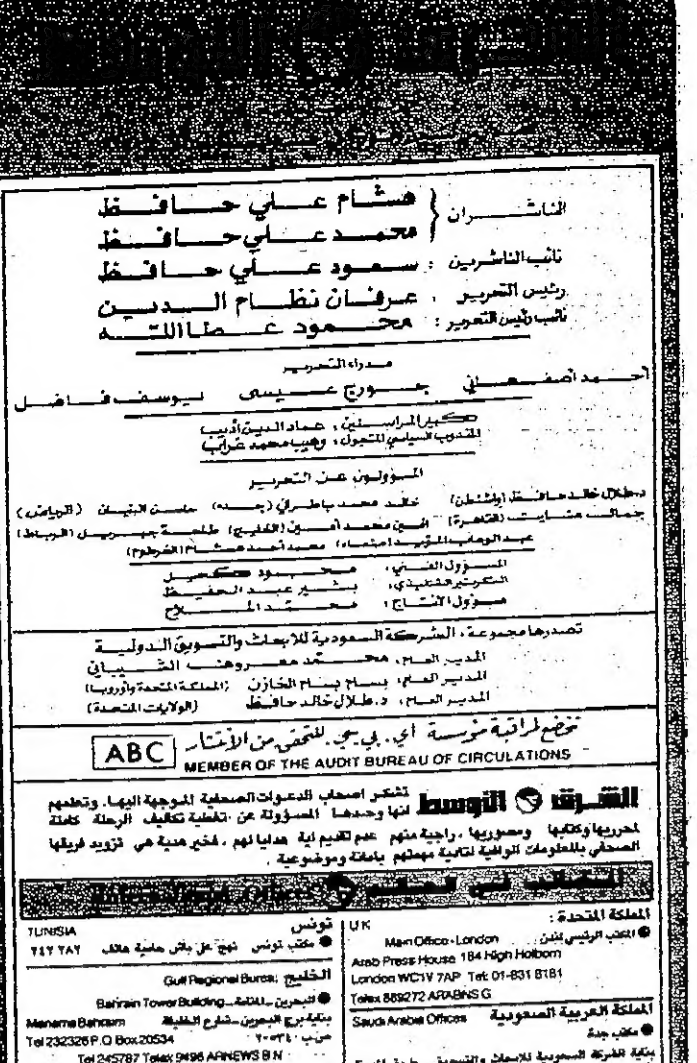 الشرق الأوسط
الناشران { هشام علي حافظ
محمد علي حافظ
نائب الناشرين : سعود علي حافظ
رئيس التحرير : عرفان نظام الدين
نائب رئيس التحرير : محمود عطاالله
مدراء التحرير
أحمد أصفهاني جورج عيسى يوسف فاضل
كبير المراسلين : عماد الدين أديب
المندوب السياسي المتجول : وهيب محمد غراب
المسؤولون عن التحرير
د. طلال خالد حافظ (واشنطن) خالد محمد باطرفي (جدة) (الرياض)
(القاهرة) (الخليج) طلحة جبريل (الرباط)
عبد الوهاب المؤيد (صنعاء) محمد أحمد هشام (الخرطوم)
المسؤول الفني : محمود كحيل
السكرتير التنفيذي : بشير عبد الحفيظ
مسؤول الانتاج : محمد الملاح
تصدرها مجموعة : الشركة السعودية للابحاث والتسويق الدولية
المدير العام : محمد معروف الشيباني
المدير العام : بسام الخازن (المملكة المتحدة وأوروبا)
المدير العام : د. طلال خالد حافظ (الولايات المتحدة)
تخضع لمراقبة مؤسسة أي. بي. سي. للتحقق من الانتشار ABC
MEMBER OF THE AUDIT BUREAU OF CIRCULATIONS
الشرق الأوسط تشكر اصحاب الدعوات الصحفية الموجهة اليها. وتعلمهم
انها وحدها المسؤولة عن تغطية تكاليف الرحلة كاملة
لمحرريها وكتابها ومصوريها ، راجية منهم عدم تقديم اية هدايا لهم ، فخير هدية هي تزويد فريقها
الصحفي بالمعلومات الوافية لتأدية مهمتهم بامانة وموضوعية .
المكاتب في العالم
المملكة المتحدة : UK
● المكتب الرئيسي لندن Main Office - London
Arab Press House 184 High Holborn
London WC1V 7AP Tel: 01-831 8181
Telex 889272 ARABNS G
المملكة العربية السعودية Saudi Arabia Offices
● مكتب جدة
بناية الشركة السعودية للابحاث والتسويق
تونس TUNISIA
● مكتب تونس نهج علي باش حامبة هاتف ٢٤٧ ٢٨٢
الخليج Gulf Regional Bureau
● البحرين ـ المنامة Bahrain Tower Building
بناية برج البحرين ـ شارع الخليفة Manama Bahrain
ص.ب : ٢٠٥٣٤ Tel 232326 P.O Box 20534
Tel 245787 Telex 9496 ARNEWS B N